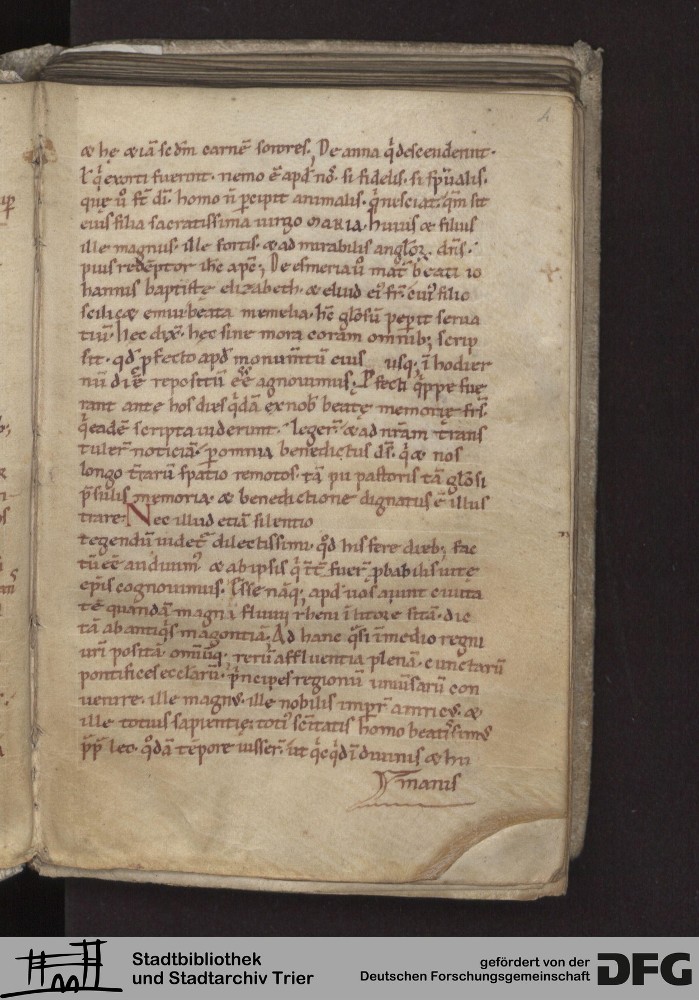 4
& hę &iā scdm̄ carnē sorores; De anna q̄ descenderunt.
l' q̄ exorti fuerint. nemo ē apd' nos̄. si fidelis. si sp̄ualis.
quę u̅ s̄t dī. homo n̄ p̄cipit animalis. q̄ nesciat. qm̄ sit
eius filia sacratissima uirgo MARIA. huius & filius
ille magnus. ille fortis. & ad mirabilis angl̄oꝝ. dn̄s.
pius redēptor ih̄c ap̄e; De esmeria u̅ mat̄ beati io
hannis baptistę elizabeth. & eliud ei' fr̄. cui' filio
scilic& emiu beata memelia. h̄c gl̄osū pep̄it serua
tiū. hec dix̄. hęc sine mora coram omnib; scrip
sit. qd' p̄fecto apd' monum̄tū eius usq; ī hodier
nū diē repositū ēe agnouimus; P̄fecti q̄ppe fue
rant ante hos dies q̄dā ex nob̄ beatę memorię fr̄s.
q̄ eadē scripta uiderunt. leger̄ & ad nr̄am trans
tuler̄ noticiā. p̄ omnia benedictus ds̄. q̄ & nos
longo t̄rarū spatio remotos. tā pii pastoris tā gl̄osi
p̄sulis memoria. & benedictione dignatus ē illus
trare. Nec illud etiā silentio
tegendū uidet̄ dilectissimi. qd' his fere dieb; fac
tū ēe audiuim'. & ab ipsis q̄ īt̄ fuer̄ p̄babilis uitę
ep̄is cognouimus. Esse nāq; apd' uos aiunt ciuita
tē quandā magni fluuii rheni ī litore sitā. dic
tā ab antiq̄s magontiā. Ad hanc q̄si ī medio regni
uri positā. omniūq; rerū affluentia plenā. cunctarū
pontifices ecclarū. p̄ncipes regionū uniūsarū con
uenire. ille magn'. ille nobilis imper̄ anricus. &
ille totius sapientię. toti' sc̄itatis homo beatissim'
p̄p̄ leo. q̄dā tēpore iusser̄. ut q̄cq̄d ī diuinis & hu
manis
Stadtbibliothek
und Stadtarchiv Trier
gefördert von der
Deutschen Forschungsgemeinschaft
DFG